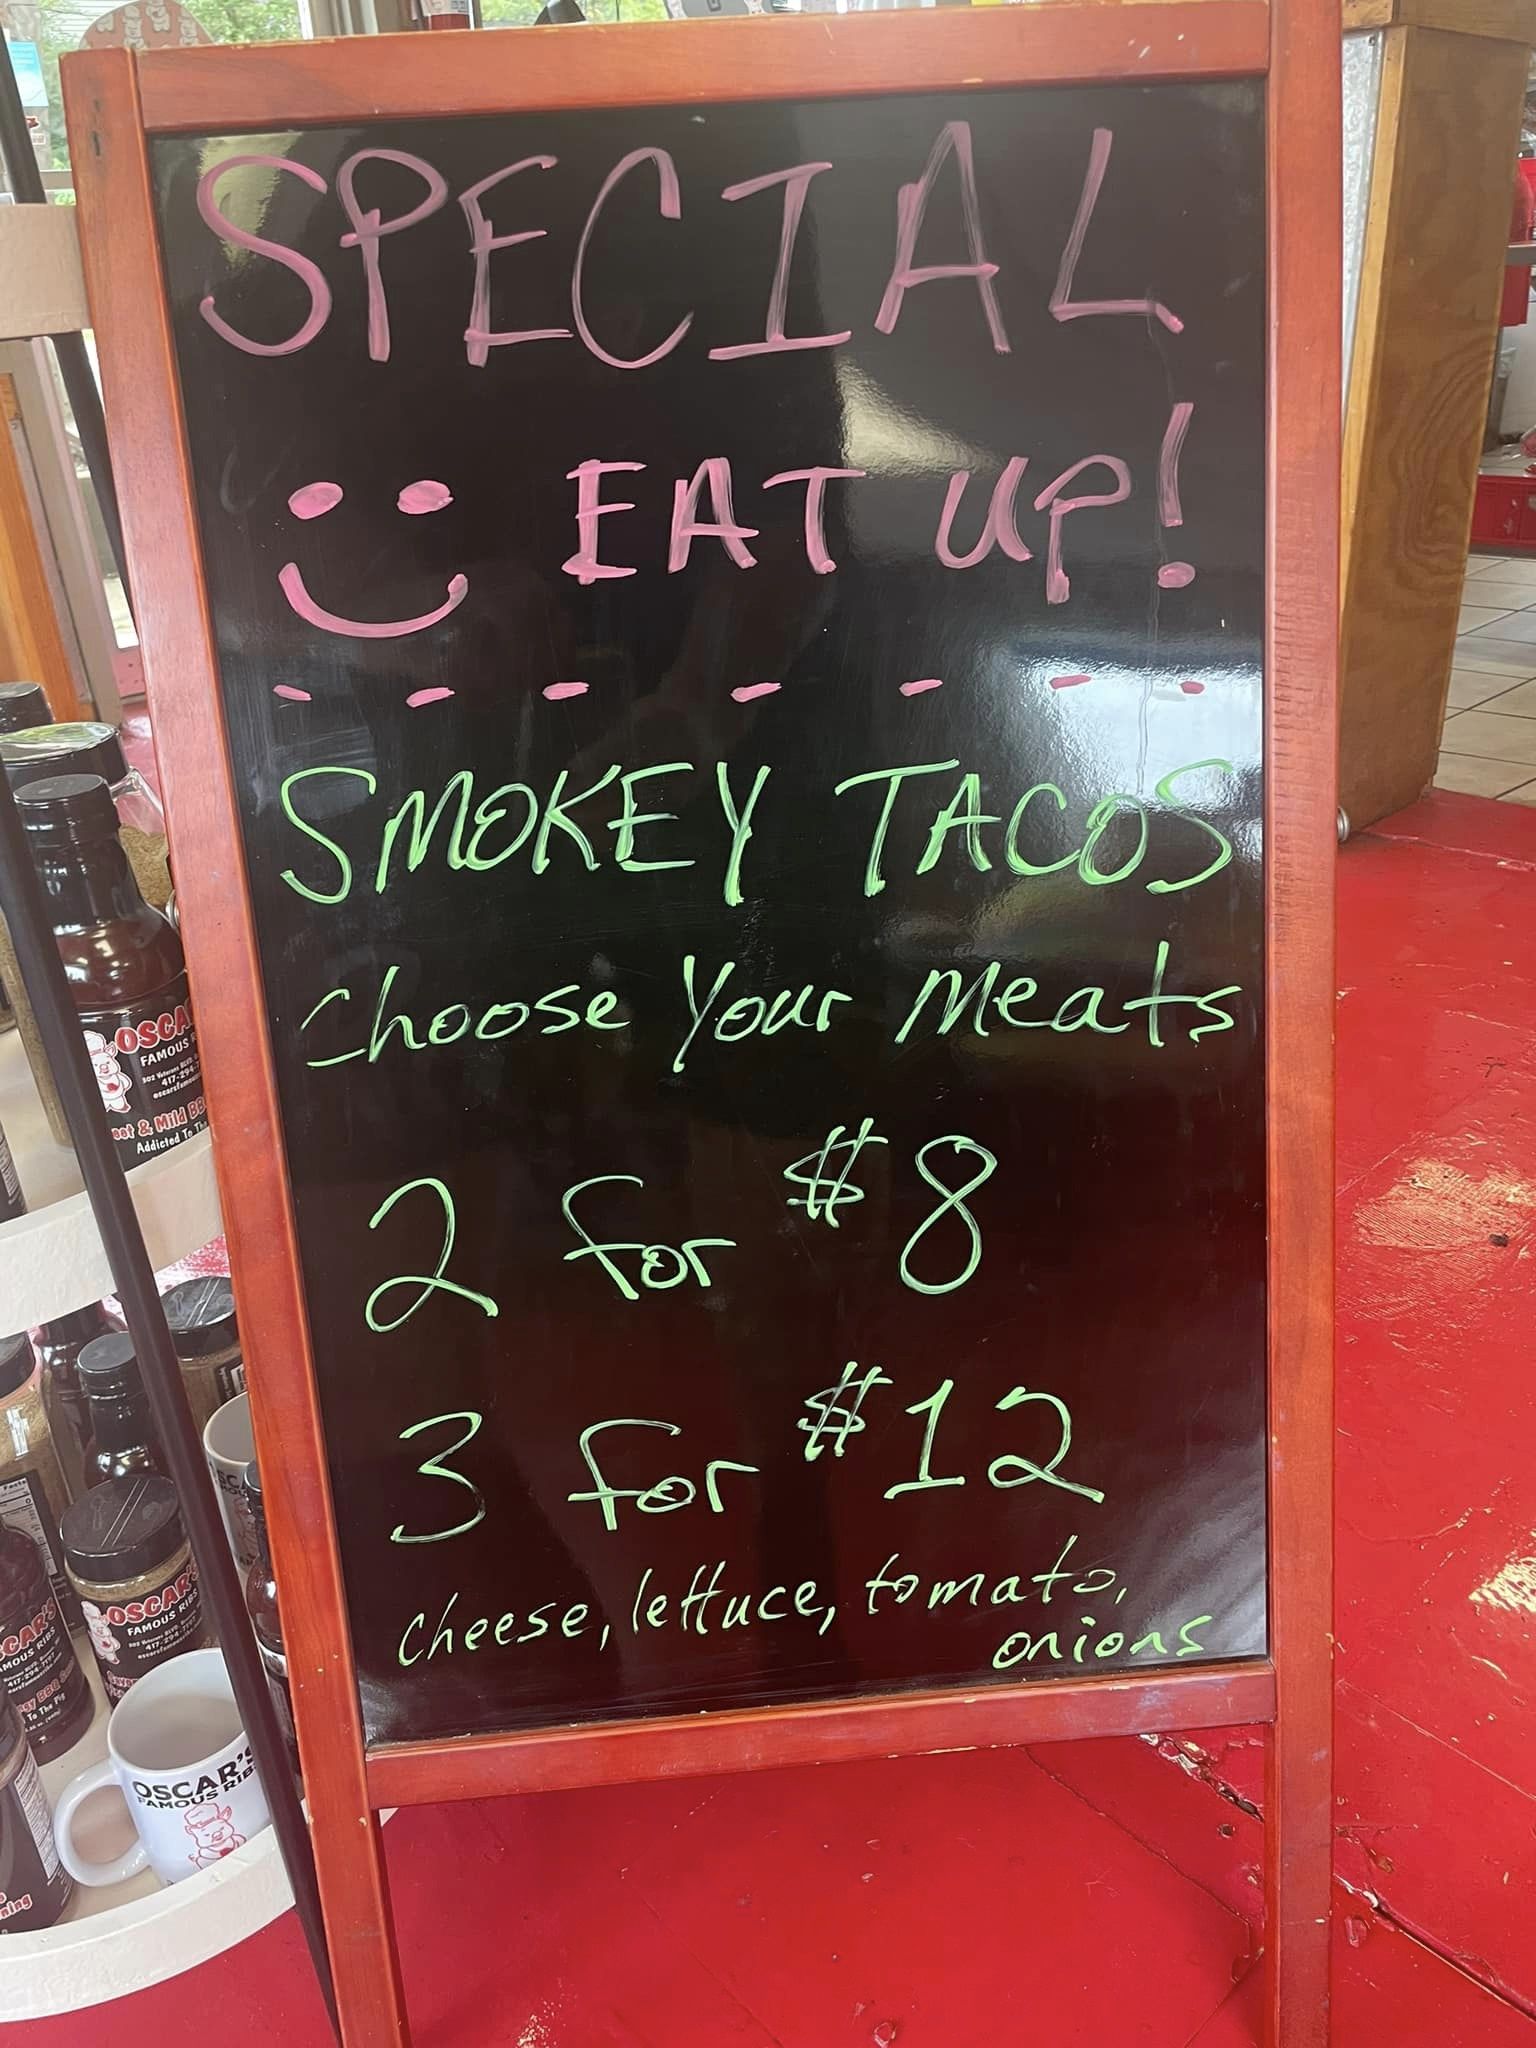 SPECIAL
EAT UP!
SMOKEY TACOS
choose your meats
2 for $8
3 for $12
cheese, lettuce, tomato,
onions
OSCA
FAMOUS
417-294-
& Mild BB
Addicted To
OSCAR'S
FAMOUS RIBS
417-294-7197
OSCAR'S
FAMOUS RIBS